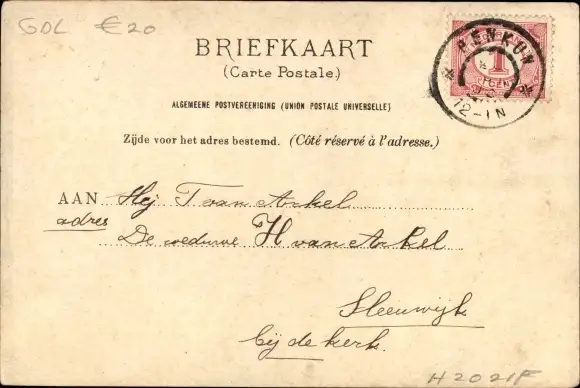 GDL €20
BRIEFKAART
(Carte Postale.)
ALGEMEENE POSTVEREENIGING (UNION POSTALE UNIVERSELLE)
Zijde voor het adres bestemd. (Côté réservé à l'adresse.)
RENKUM
1
CENT
12-1N
AAN Hej T van Arkel
adres
De weduwe H van Arkel
Sleeuwijk
bij de kerk.
H2021F